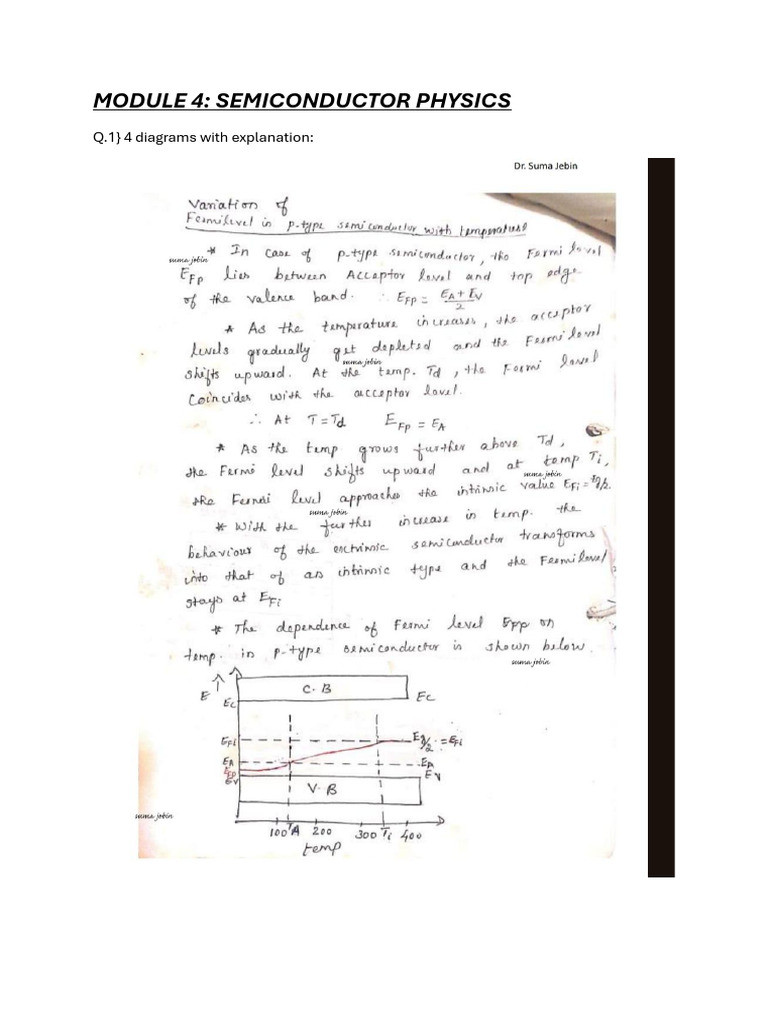 MODULE 4: SEMICONDUCTOR PHYSICS
Q.1} 4 diagrams with explanation:
Dr. Suma Jebin
Variation of
Fermilevel in p-type semiconductor with temperature
* In case of p-type semiconductor, the Fermi level
suma jebin
EFp lies between Acceptor level and top edge
of the valence band. ∴ EFp = EA + EV / 2
* As the temperature increases, the acceptor
levels gradually get depleted and the Fermi level
suma jebin
shifts upward. At the temp. Td, the Fermi level
Coincides with the acceptor level.
∴ At T = Td EFp = EA
* As the temp grows further above Td,
the Fermi level shifts upward and at temp Ti,
suma jebin
the Fermi level approaches the intrinsic value EFi = Eg/2.
suma jebin
* With the further increase in temp. the
behaviour of the extrinsic semiconductor transforms
into that of an intrinsic type and the Fermilevel
stays at EFi
* The dependence of Fermi level EFp on
temp. in p-type semiconductor is shown below.
suma jebin
E ↑ C.B
EC EC
EFi Eg/2 = EFi
EA EA
EFp
EV EV
V.B
suma jebin
100 TA 200 300 Ti 400
temp